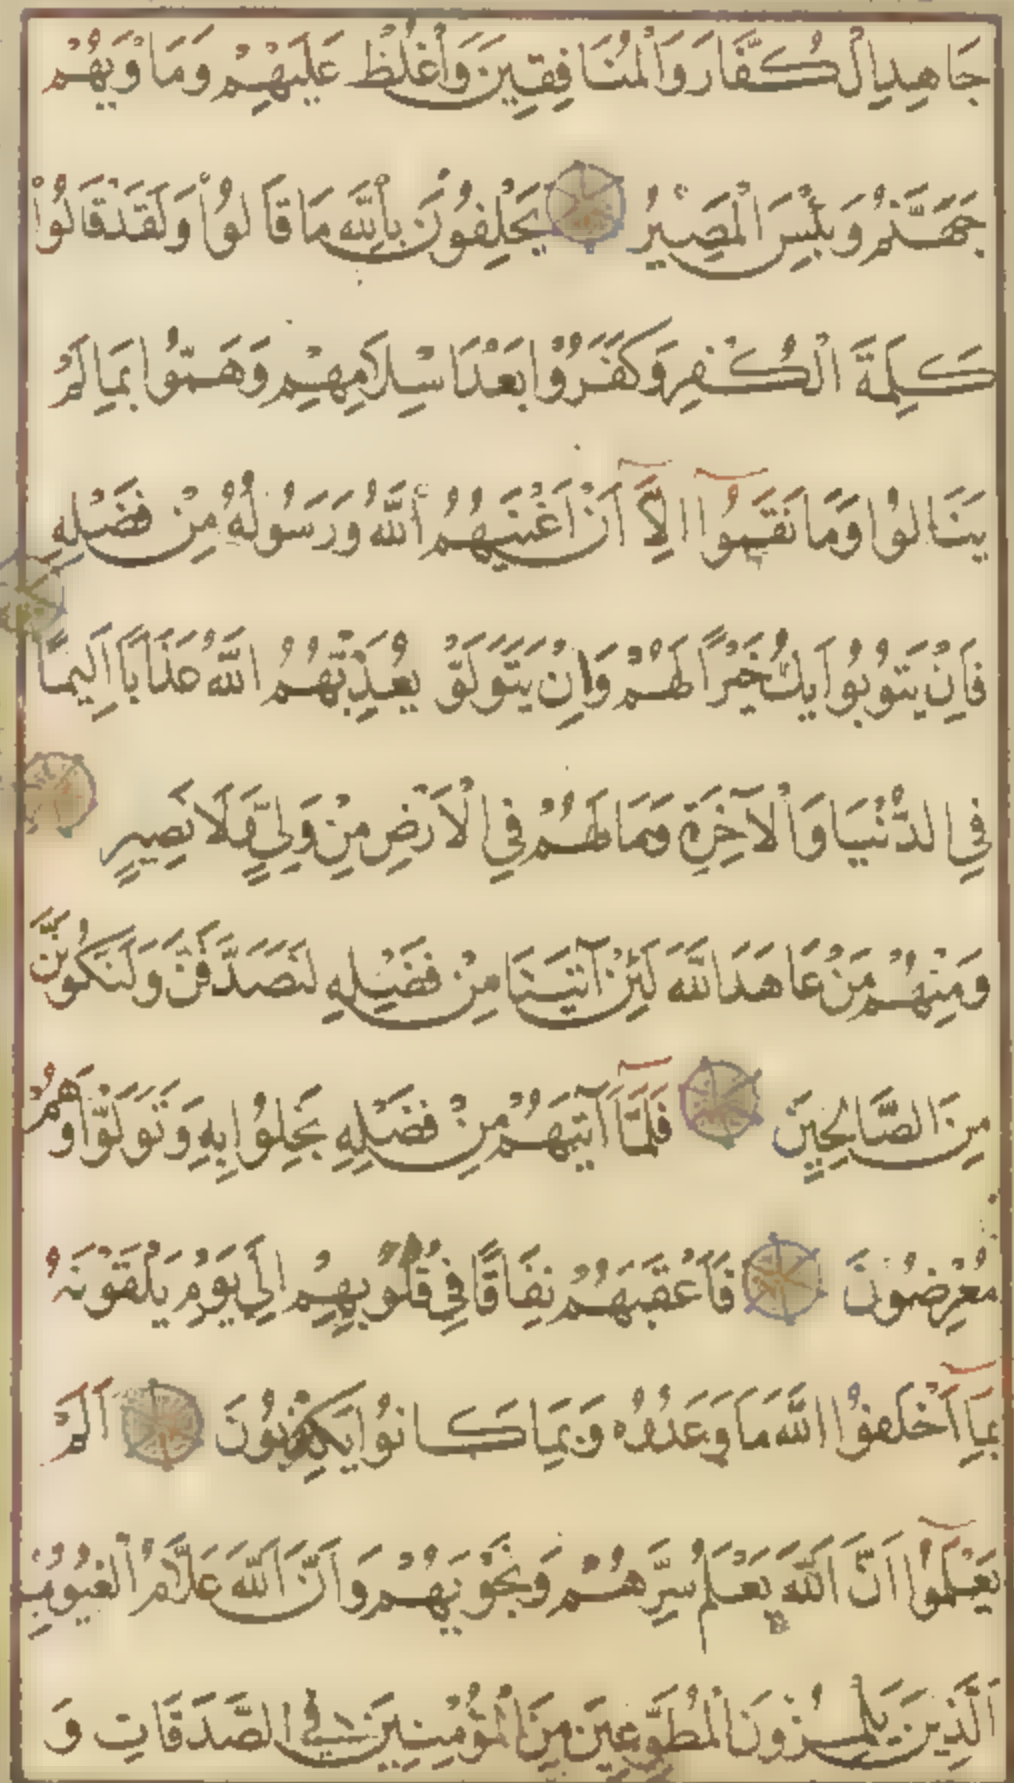 جَاهِدِ الْكُفَّارَ وَالْمُنَافِقِينَ وَاغْلُظْ عَلَيْهِمْ وَمَاْوٰيهُمْ
جَهَنَّمُ وَبِئْسَ الْمَصِيرُ يَحْلِفُونَ بِاللّٰهِ مَا قَالُوا وَلَقَدْ قَالُوا
كَلِمَةَ الْكُفْرِ وَكَفَرُوا بَعْدَ اِسْلَامِهِمْ وَهَمُّوا بِمَا لَمْ
يَنَالُوا وَمَا نَقَمُوا اِلَّا اَنْ اَغْنٰيهُمُ اللّٰهُ وَرَسُولُهُ مِنْ فَضْلِهِ
فَاِنْ يَتُوبُوا يَكُ خَيْرًا لَهُمْ وَاِنْ يَتَوَلَّوْ يُعَذِّبْهُمُ اللّٰهُ عَذَابًا اَلِيمًا
فِي الدُّنْيَا وَالْآخِرَةِ وَمَا لَهُمْ فِي الْاَرْضِ مِنْ وَلِيٍّ وَلَا نَصِيرٍ
وَمِنْهُمْ مَنْ عَاهَدَ اللّٰهَ لَئِنْ آتٰينَا مِنْ فَضْلِهِ لَنَصَّدَّقَنَّ وَلَنَكُونَنَّ
مِنَ الصَّالِحِينَ فَلَمَّا آتٰيهُمْ مِنْ فَضْلِهِ بَخِلُوا بِهِ وَتَوَلَّوْا وَهُمْ
مُعْرِضُونَ فَاَعْقَبَهُمْ نِفَاقًا فِي قُلُوبِهِمْ اِلٰى يَوْمِ يَلْقَوْنَهُ
بِمَا اَخْلَفُوا اللّٰهَ مَا وَعَدُوهُ وَبِمَا كَانُوا يَكْذِبُونَ اَلَمْ
يَعْلَمُوا اَنَّ اللّٰهَ يَعْلَمُ سِرَّهُمْ وَنَجْوٰيهُمْ وَاَنَّ اللّٰهَ عَلَّامُ الْغُيُوبِ
اَلَّذِينَ يَلْمِزُونَ الْمُطَّوِّعِينَ مِنَ الْمُؤْمِنِينَ فِي الصَّدَقَاتِ وَ